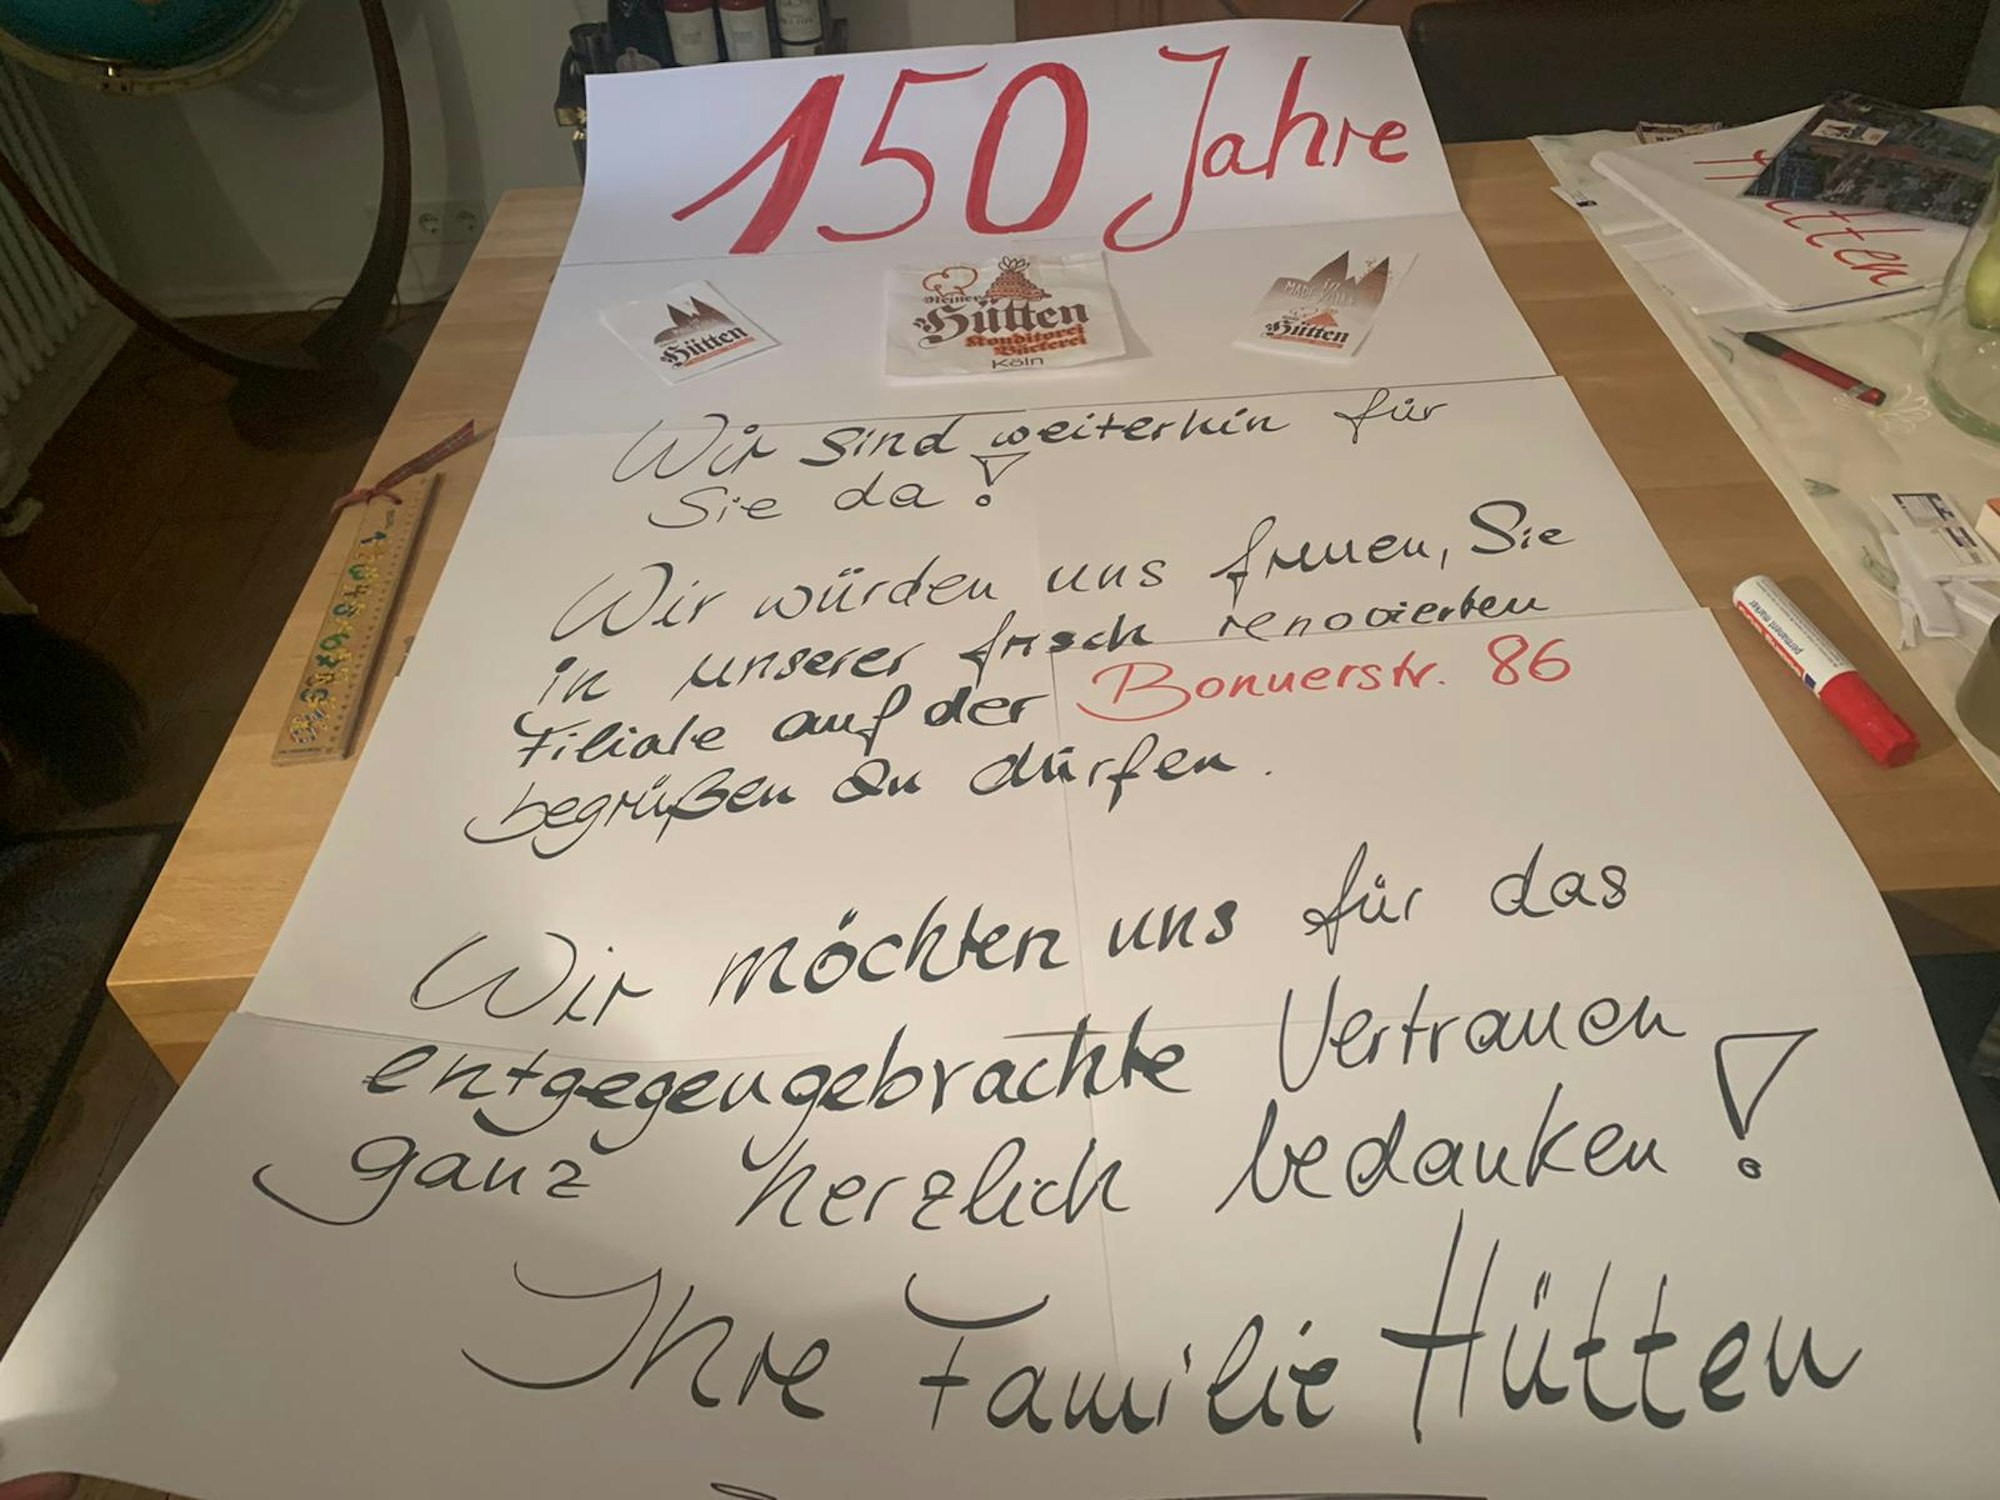 150 Jahre
Hütten
Reiner
Hütten
Konditorei
Bäckerei
Köln
MADE
Hütten
Wir sind weiterhin für
Sie da!
Wir würden uns freuen, Sie
in unserer frisch renovierten
Filiale auf der Bonnerstr. 86
begrüßen zu dürfen.
Wir möchten uns für das
entgegengebrachte Vertrauen
ganz herzlich bedanken!
Ihre Familie Hütten
permanent marker